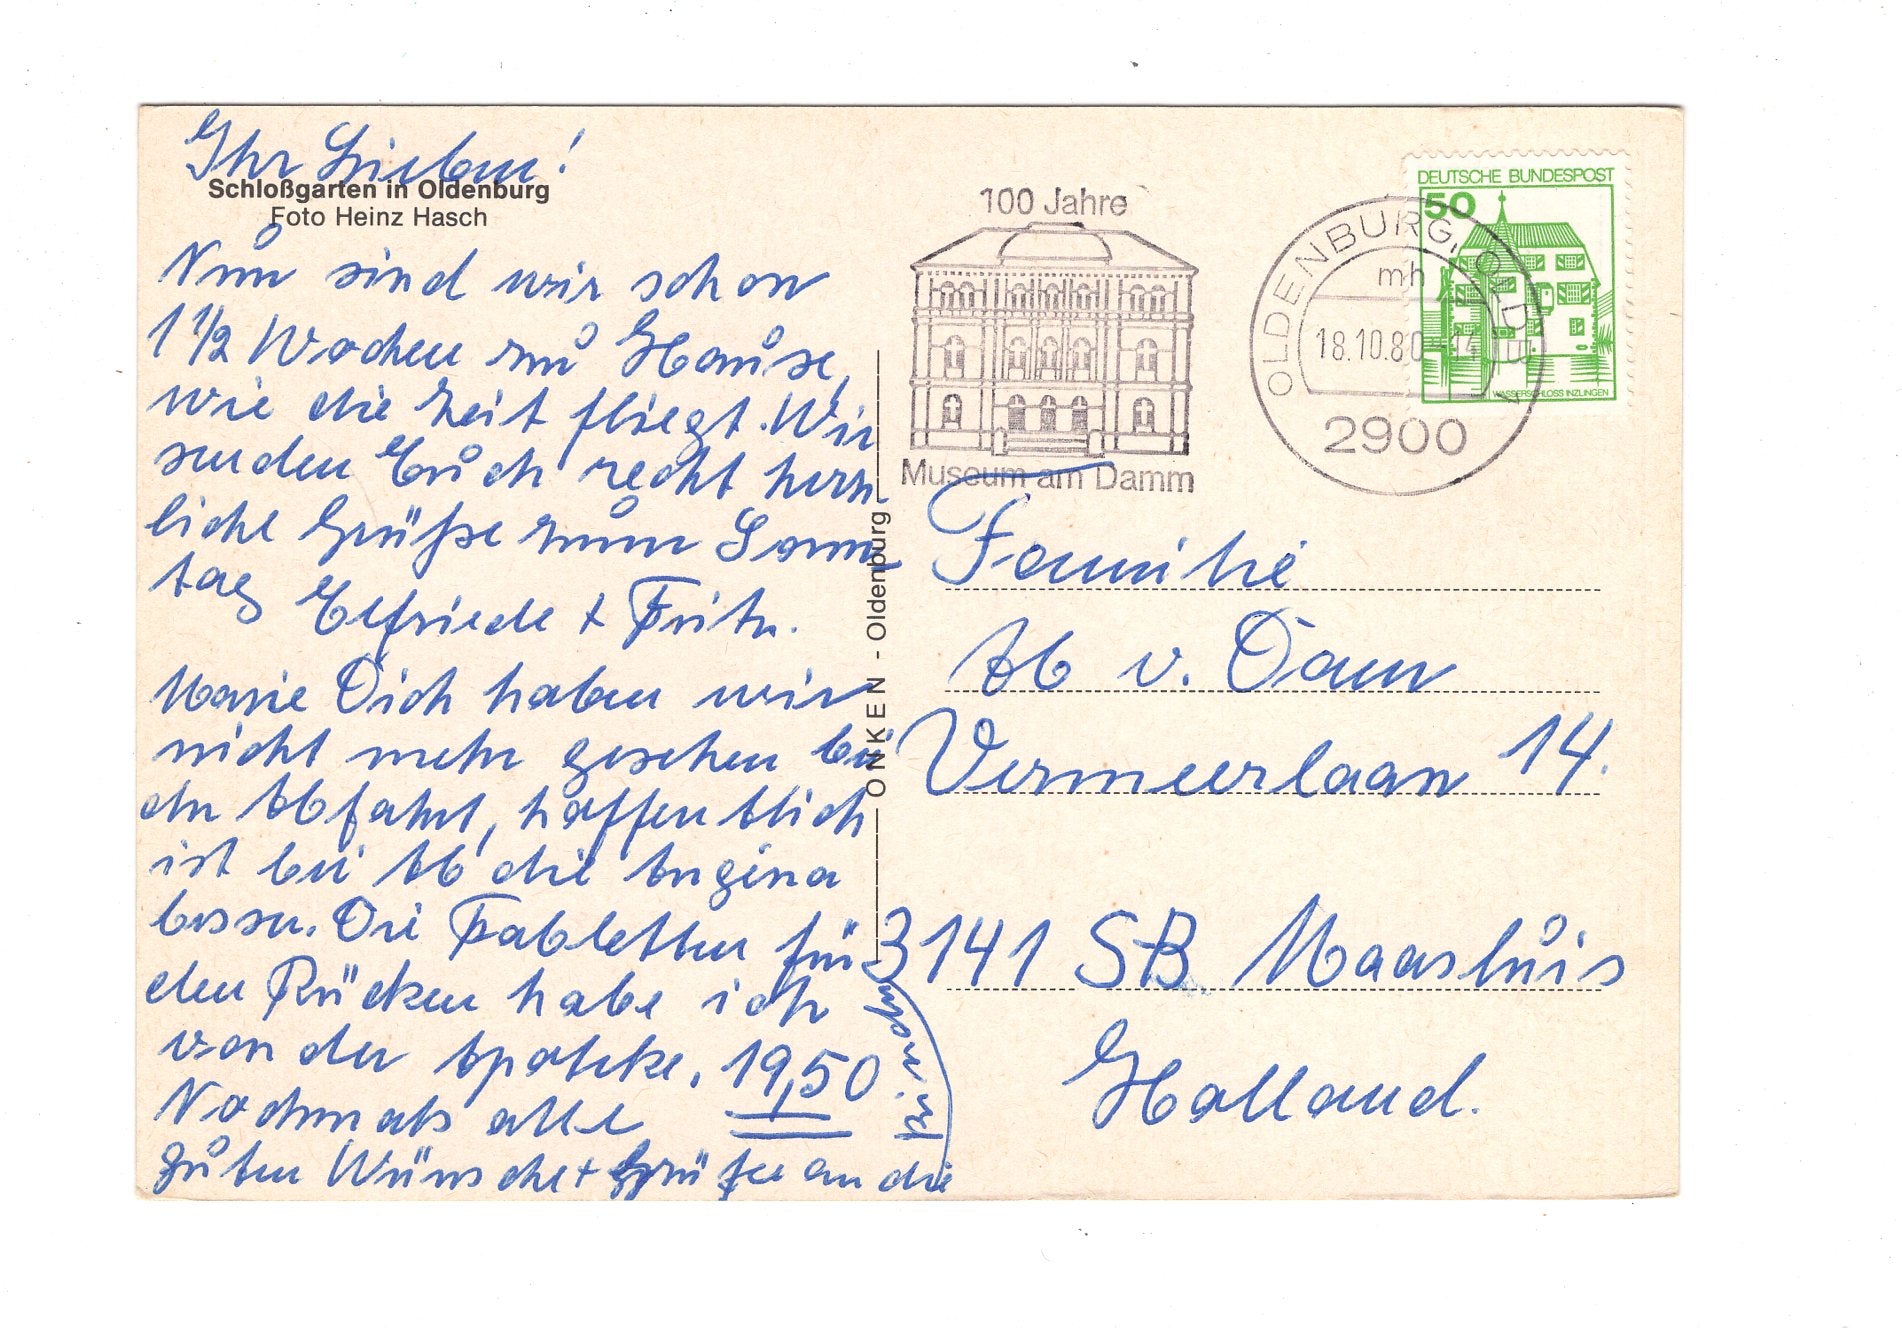 Ihr Lieben!
Schloßgarten in Oldenburg
Foto Heinz Hasch
Nun sind wir schon
1 1/2 Wochen zu Hause,
wie die Zeit fliegt. Wir
senden Euch recht herz-
liche Grüße zum Sonn
tag Elfriede + Fritz.
Marie Dich haben wir
nicht mehr gesehen bei
der Abfahrt, hoffentlich
ist bei Ab die Angina
besser. Die Tabletten für
den Rücken habe ich
von der Apotheke. 19,50
Nochmals alle
guten Wünsche + Grüße an die
Kinder
ONKEN - Oldenburg
100 Jahre
Museum am Damm
OLDENBURG, OLDB
mh
18.10.80-14
2900
DEUTSCHE BUNDESPOST
50
WASSERSCHLOSS INZLINGEN
Familie
Ab v. Dam
Vermeerlaan 14.
3141 SB Maasluis
Holland.